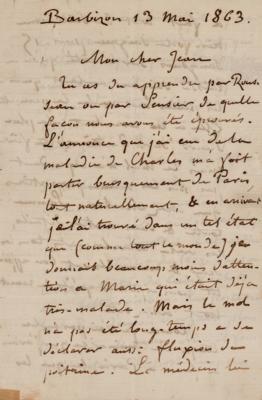 Barbizon 13 Mai 1863.
Mon cher Jean
Tu as du apprendre par Rous
seau ou par Sensier de quelle
façon nous avons été éprouvés.
L'annonce que j'ai eue de la
maladie de Charles m'a fait
partir brusquement de Paris
tout naturellement, & en arrivant
je l'ai trouvé dans un tel état
que (comme tout le monde) j'ai
donnait beaucoup moins d'atten
tion a Marie qui était déja
très-malade. Mais le mal
n'a pas été long-temps a se
déclarer aussi fluxion de
poitrine. Le médecin lui